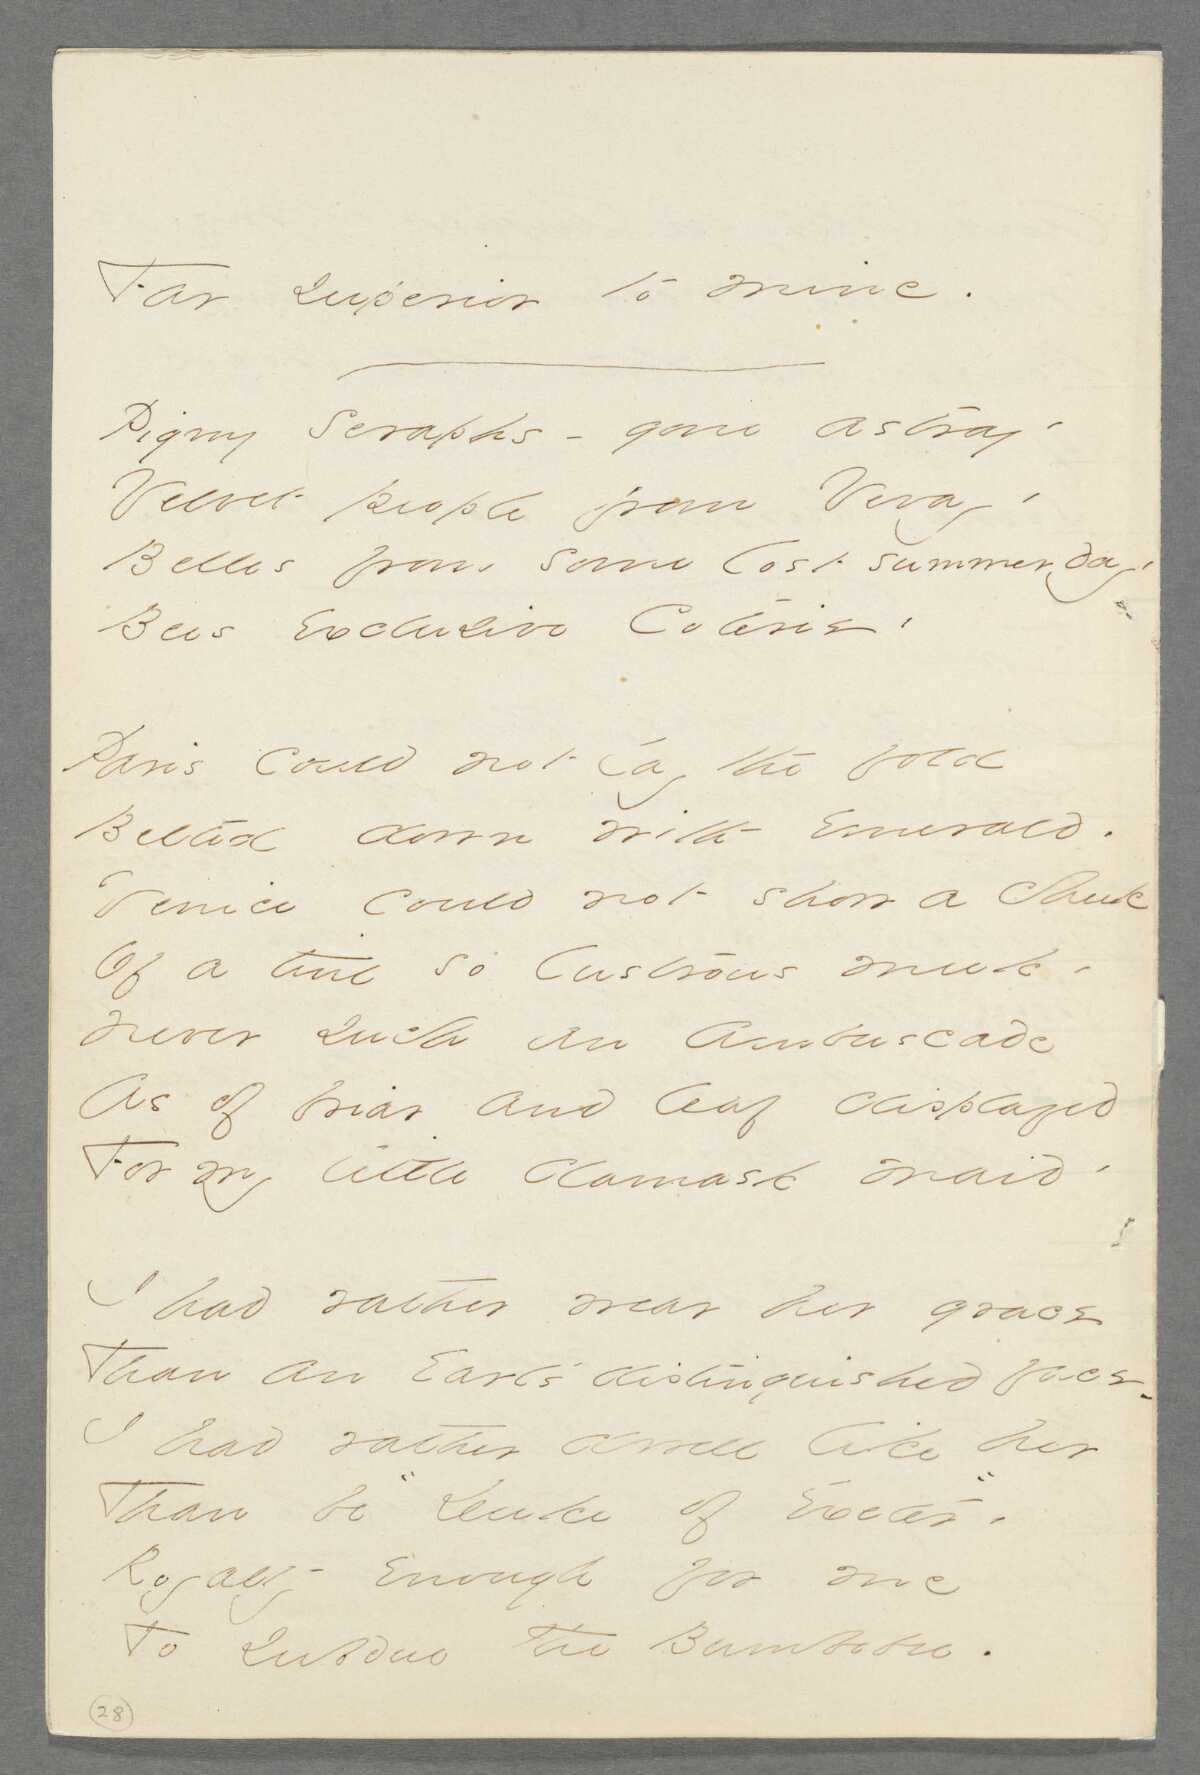 Far superior to mine.
Pigmy seraphs - gone astray -
Velvet people from Vevay -
Belles from some lost summer day -
Bees Exclusive Coterie -
Paris could not lay the fold
Belted down with Emerald.
Venice could not show a cheek
Of a tint so lustrous meek -
Never such an Ambuscade
As of briar and leaf displayed
For my little damask maid -
I had rather wear her grace
Than an Earl's distinguished face -
I had rather dwell like her
Than be "Duke of Exeter" -
Royalty Enough for me
To subdue the Bumblebee.
28